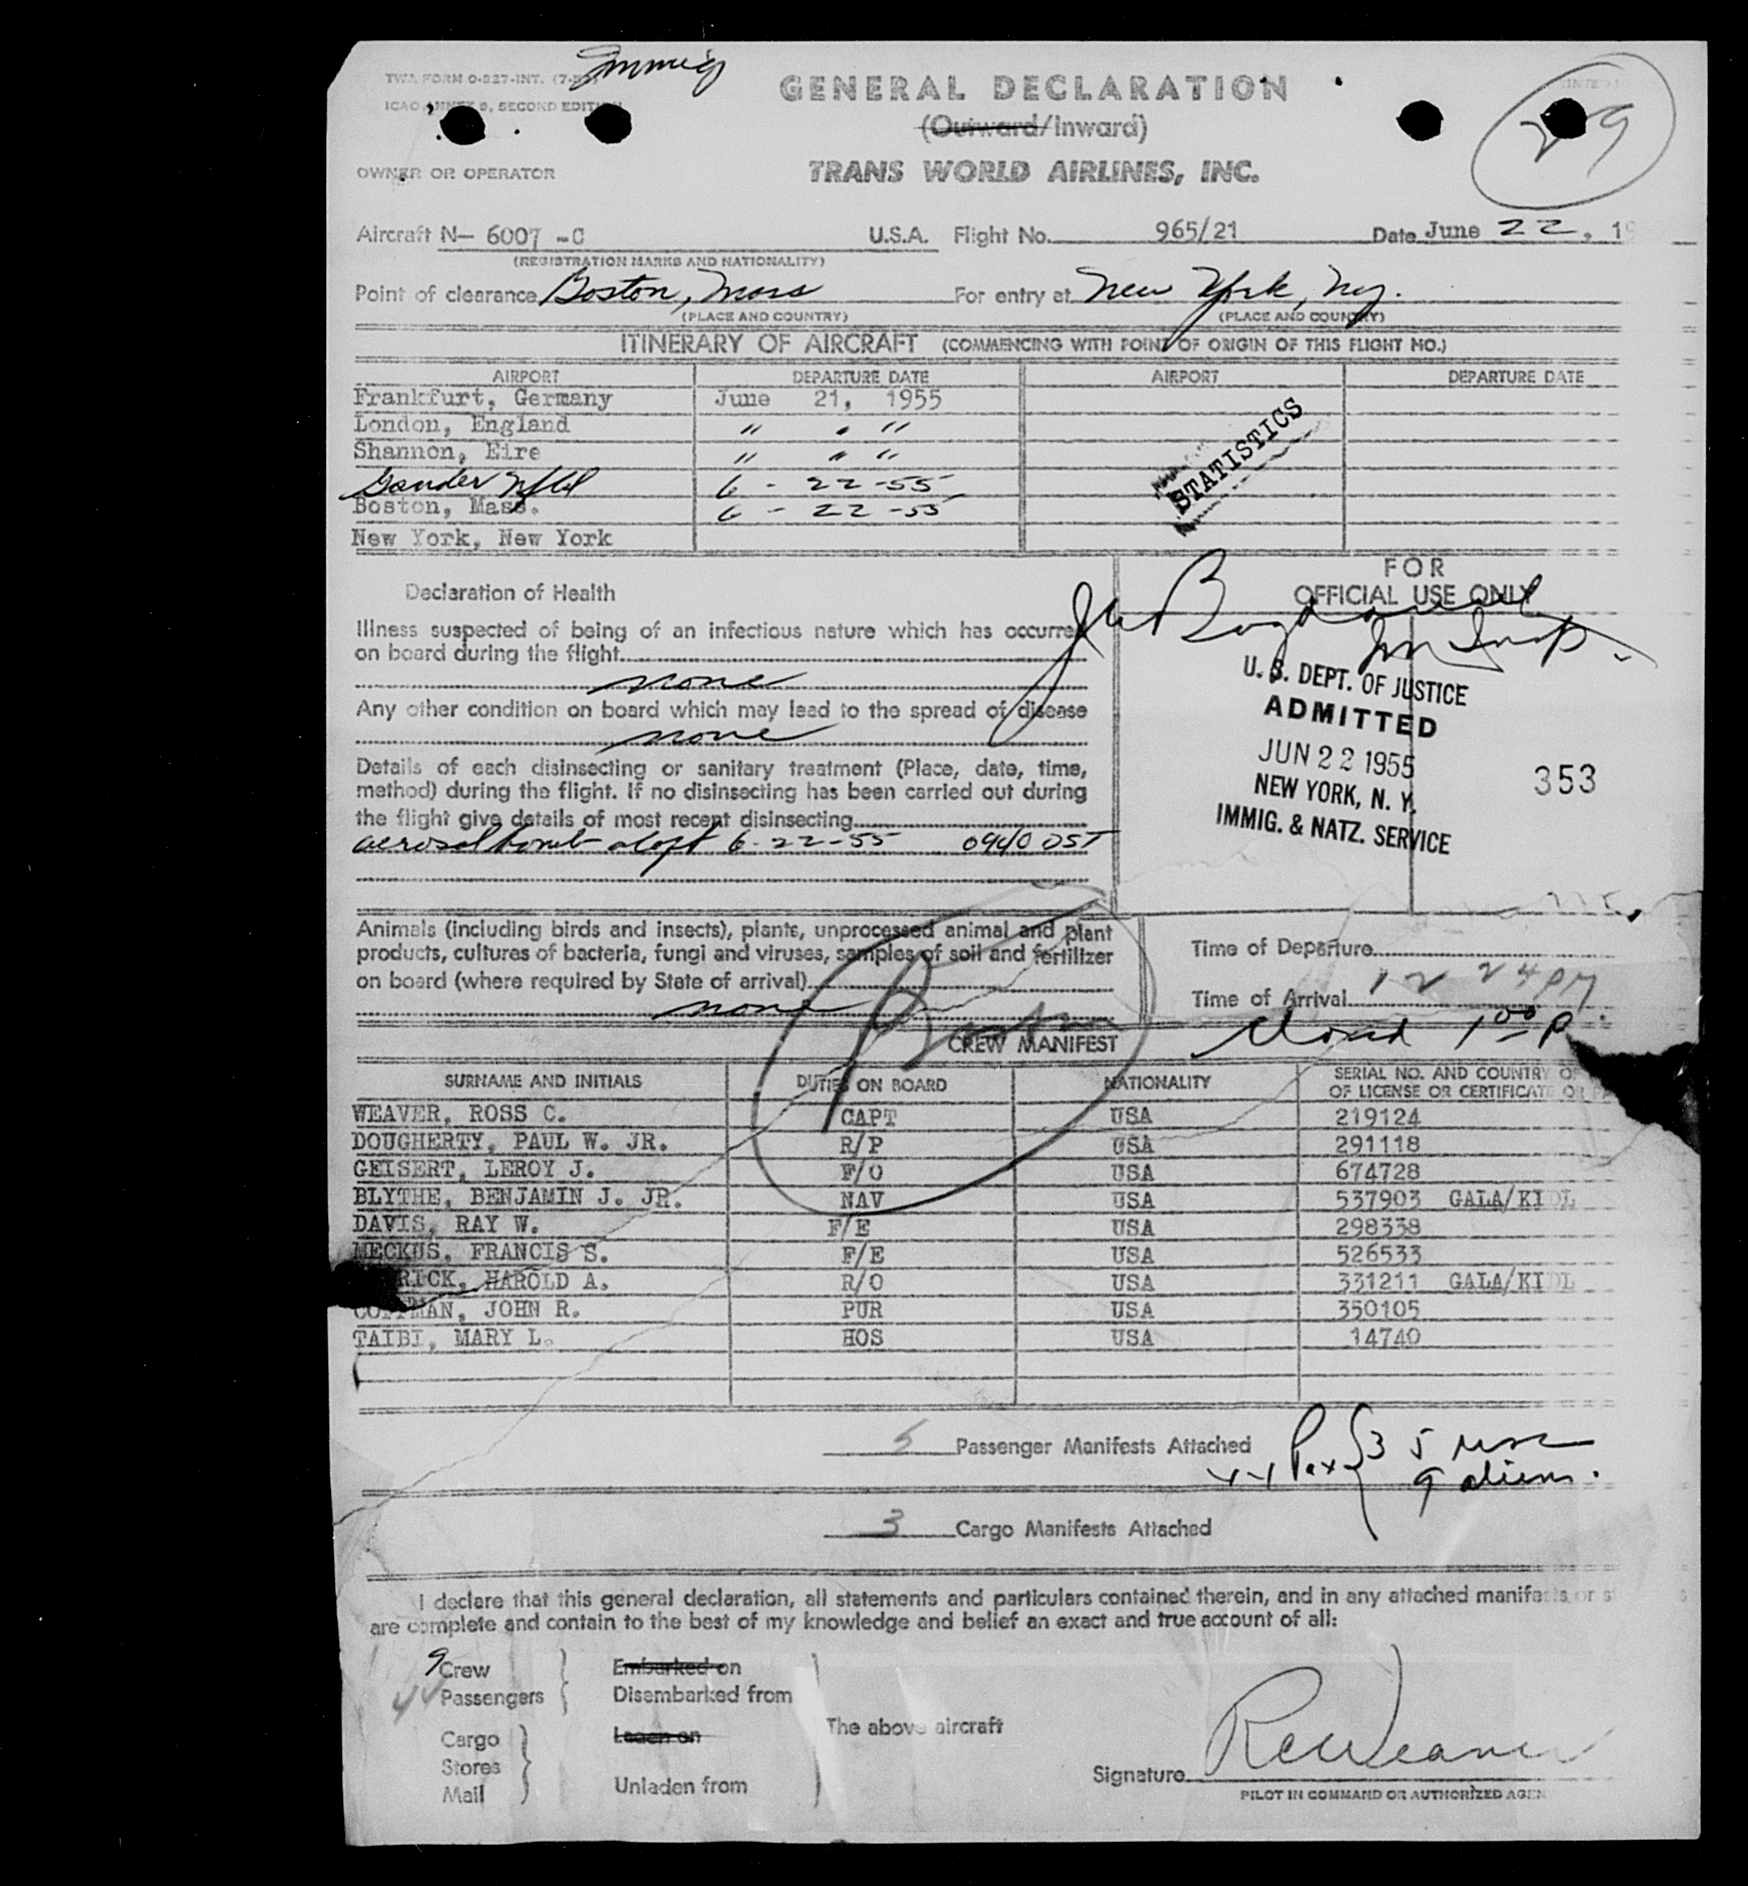 Immig
TWA FORM O-827-INT.
ICAO ANNEX 9, SECOND EDITION
GENERAL DECLARATION
(Outward/Inward)
29
OWNER OR OPERATOR
TRANS WORLD AIRLINES, INC.
Aircraft N- 6007 -C U.S.A. Flight No. 965/21 Date June 22, 19
(REGISTRATION MARKS AND NATIONALITY)
Point of clearance Boston, Mass For entry at New York, N.y.
(PLACE AND COUNTRY) (PLACE AND COUNTRY)
ITINERARY OF AIRCRAFT (COMMENCING WITH POINT OF ORIGIN OF THIS FLIGHT NO.)
AIRPORT DEPARTURE DATE AIRPORT DEPARTURE DATE
Frankfurt, Germany June 21, 1955
London, England " " "
Shannon, Eire " " "
Gander Nfld 6 - 22 -55
Boston, Mass. 6 - 22 -55
New York, New York
STATISTICS
Declaration of Health
FOR
OFFICIAL USE ONLY
Illness suspected of being of an infectious nature which has occurred
on board during the flight
none
Any other condition on board which may lead to the spread of disease
none
Details of each disinsecting or sanitary treatment (Place, date, time,
method) during the flight. If no disinsecting has been carried out during
the flight give details of most recent disinsecting
aerosol bomb aloft 6-22-55 0940 DST
U. S. DEPT. OF JUSTICE
ADMITTED
JUN 22 1955
NEW YORK, N. Y.
IMMIG. & NATZ. SERVICE
353
Animals (including birds and insects), plants, unprocessed animal and plant
products, cultures of bacteria, fungi and viruses, samples of soil and fertilizer
on board (where required by State of arrival)
none
Time of Departure
Time of Arrival 12 24 PM
1 00 P
Boston
CREW MANIFEST
SURNAME AND INITIALS DUTIES ON BOARD NATIONALITY SERIAL NO. AND COUNTRY OF
OF LICENSE OR CERTIFICATE OR
WEAVER, ROSS C. CAPT USA 219124
DOUGHERTY, PAUL W. JR. R/P USA 291118
GEISERT, LEROY J. F/O USA 674728
BLYTHE, BENJAMIN J. JR. NAV USA 537903 GALA/KIDL
DAVIS, RAY W. F/E USA 298338
MECKUS, FRANCIS S. F/E USA 526533
RICK, HAROLD A. R/O USA 331211 GALA/KIDL
JOHN R. PUR USA 350105
TAIBI, MARY L. HOS USA 14740
5 Passenger Manifests Attached
44 Pax { 35 USC
9 aliens.
3 Cargo Manifests Attached
I declare that this general declaration, all statements and particulars contained therein, and in any attached manifests or
are complete and contain to the best of my knowledge and belief an exact and true account of all:
9 Crew Embarked on
44 Passengers Disembarked from
Cargo Laden on
The above aircraft
Stores
Mail Unladen from
Signature RCWeaver
PILOT IN COMMAND OR AUTHORIZED AGEN